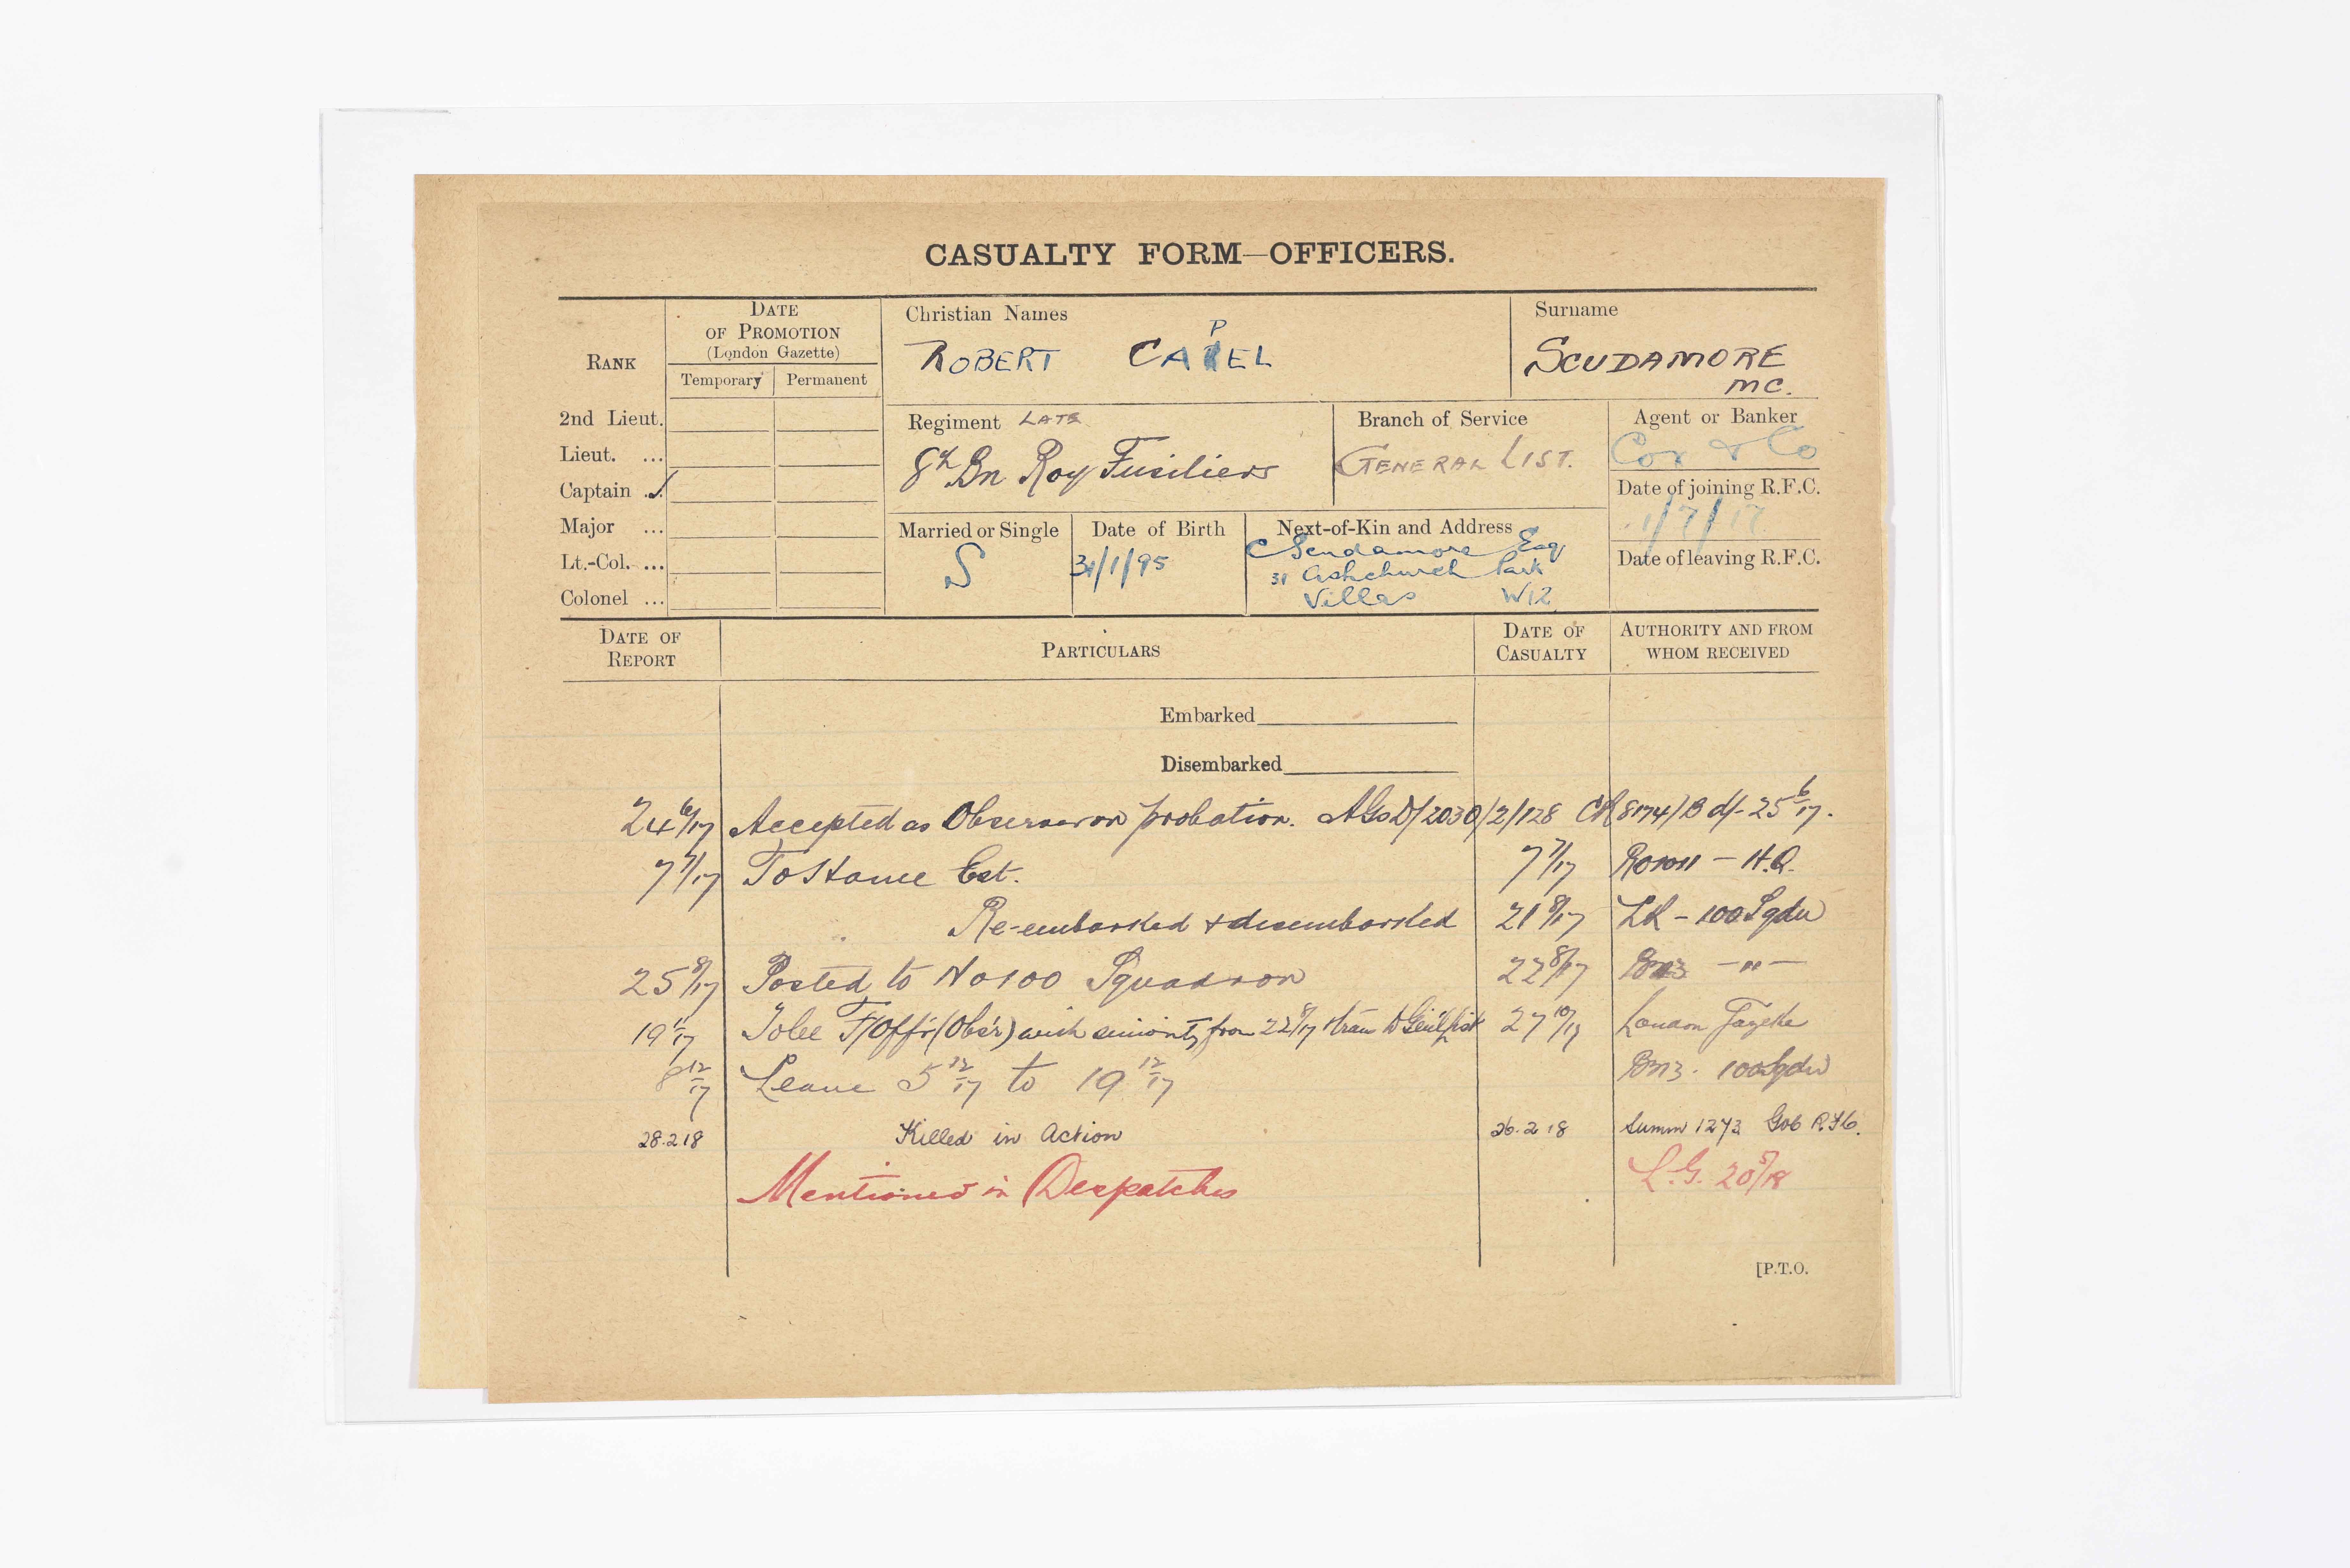 CASUALTY FORM—OFFICERS.
RANK
DATE
OF PROMOTION
(London Gazette)
Temporary Permanent
2nd Lieut.
Lieut. ...
Captain ..
Major ...
Lt.-Col. ...
Colonel ...
Christian Names
ROBERT CAPEL
Surname
SCUDAMORE
MC.
Regiment LATE
8th Bn Roy Fusiliers
Branch of Service
GENERAL LIST.
Agent or Banker
Cox & Co
Date of joining R.F.C.
1/7/17
Date of leaving R.F.C.
Married or Single
S
Date of Birth
31/1/95
Next-of-Kin and Address
C Scudamore Esq
31 Ashchurch Park
Villas W12
DATE OF REPORT
PARTICULARS
DATE OF CASUALTY
AUTHORITY AND FROM WHOM RECEIVED
Embarked
Disembarked
24 6/17 Accepted as Observer on probation. AGs D/2030/2/128 CR 8174/B d/- 25 6/17.
7 7/17 To Home Est. 7 7/17 – H.Q.
Re-embarked & disembarked 21 8/17 – 100 Sqdn
25 8/17 Posted to No 100 Squadron 22 8/17 B213 – " –
19 11/17 To be F/Offr (Obsr) with seniority from 22 8/17 & tran to Genl List 27 10/17 London Gazette
8 12/17 Leave 5 12/17 to 19 12/17 B213. 100 Sqdn
28.2.18 Killed in Action 26.2.18 Summ 1273 R.F.C.
Mentioned in Despatches L.G. 20 5/18
[P.T.O.